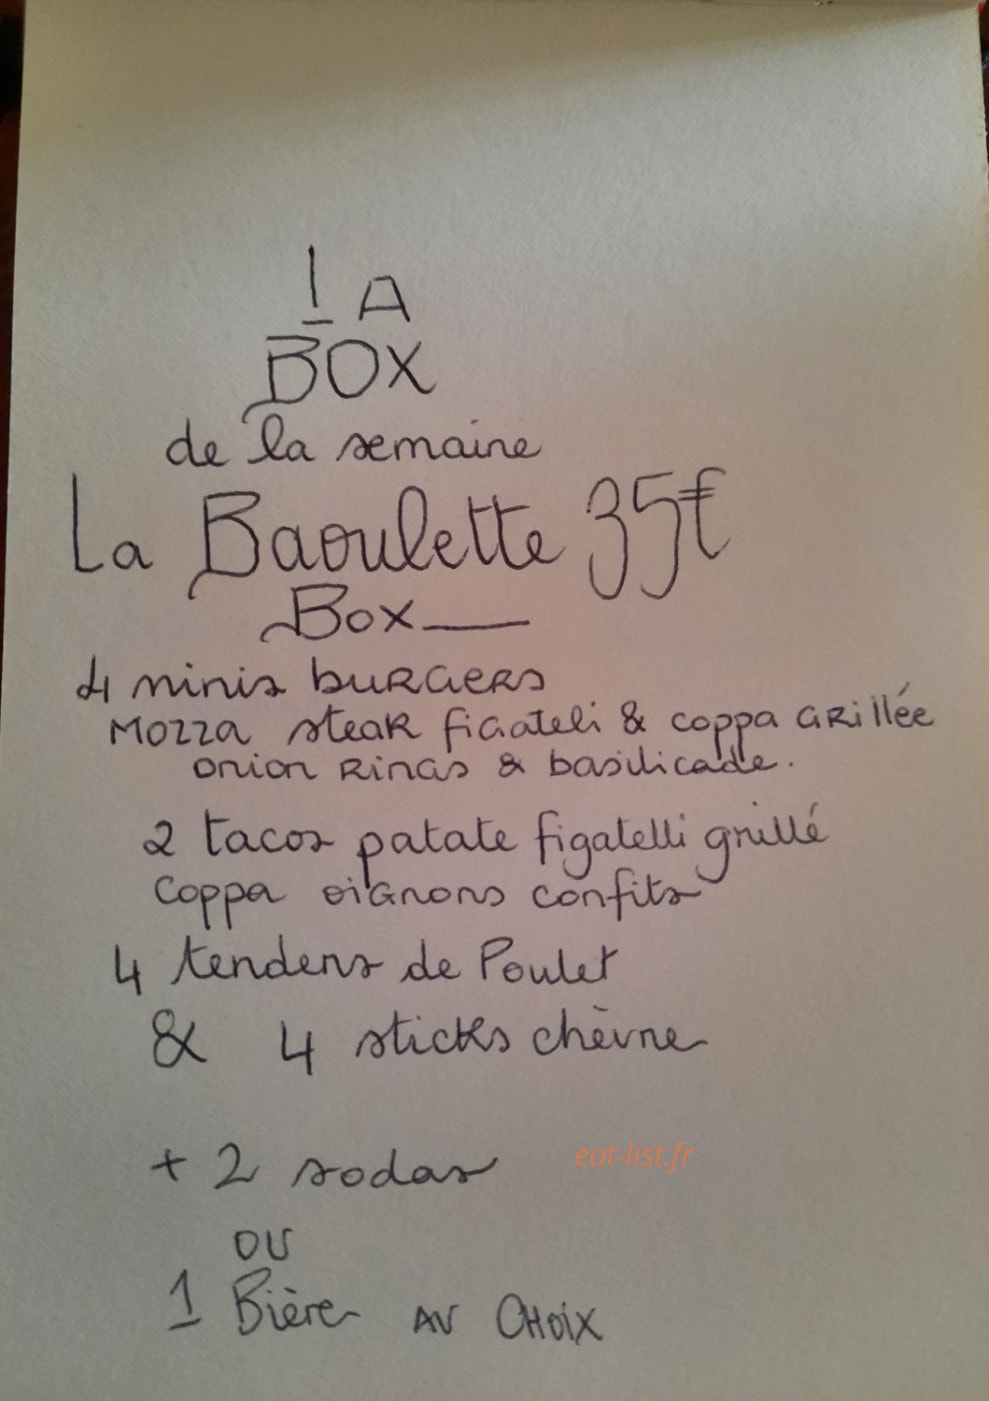 LA
BOX
de la semaine
La Baoulette 35€
Box
4 minis burgers
Mozza steak figateli & coppa grillée
onion rings & basilicade.
2 tacos patate figatelli grillé
coppa oignons confits
4 tenders de Poulet
& 4 sticks chèvre
+ 2 sodas
eat-list.fr
ou
1 Bière au choix